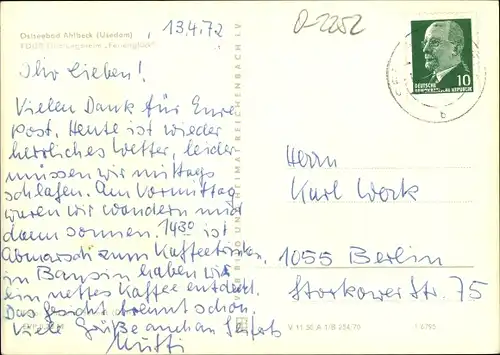 Ostseebad Ahlbeck (Usedom)
FDGB-Erholungsheim „Ferienglück“
13.4.72
D-2252
Ihr Lieben!
Vielen Dank für Eure
Post. Heute ist wieder
herrliches Wetter, leider
müssen wir mittags
schlafen. Am Vormittag
waren wir wandern und
dann sonnen. 14³⁰ ist
Abmarsch zum Kaffeetrinken,
in Bansin haben wir
ein nettes Kaffee entdeckt.
Das Gesicht brennt schon.
Viele Grüße auch an Seiferts
Mutti
BILD UND HEIMAT REICHENBACH I. V.
DEUTSCHE
DEMOKRATISCHE REPUBLIK
10
b
Herrn
Karl Work
1055 Berlin
Storkower Str. 75
V 11 50 A 1/B 254/70